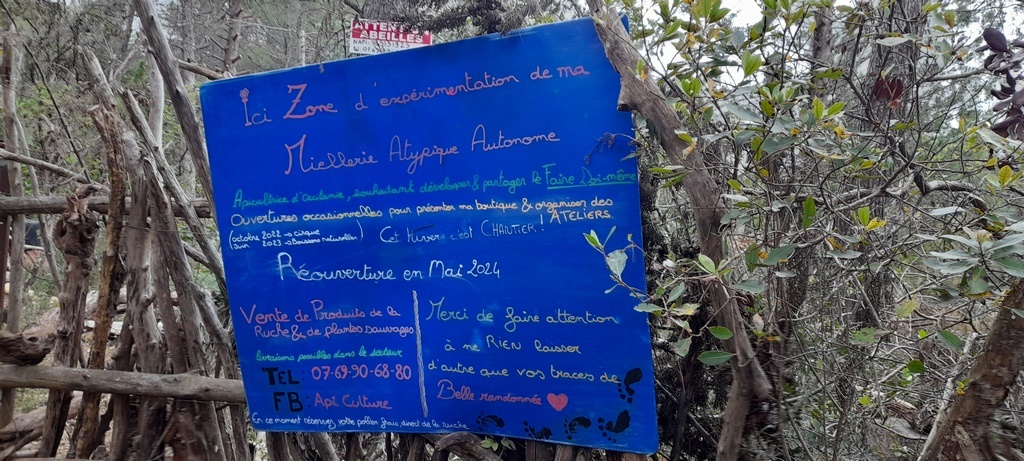 ATTENTION
ABEILLES
Ici Zone d'expérimentation de ma
Miellerie Atypique Autonome
Apicultrice d'Occitanie, souhaitant développer & partager le Faire Soi-même
Ouvertures occasionnelles pour présenter ma boutique & organiser des
ATELIERS
(octobre 2022 → cirque
Juin 2023 → boissons naturelles)
Cet hiver c'est CHANTIER !
Réouverture en Mai 2024
Vente de Produits de la
Ruche & de plantes sauvages
livraisons possibles dans le secteur
TEL : 07-69-90-68-80
FB : Api Culture
En ce moment réservez votre pollen frais, direct de la ruche
Merci de faire attention
à ne RIEN laisser
d'autre que vos traces de
Belle randonnée